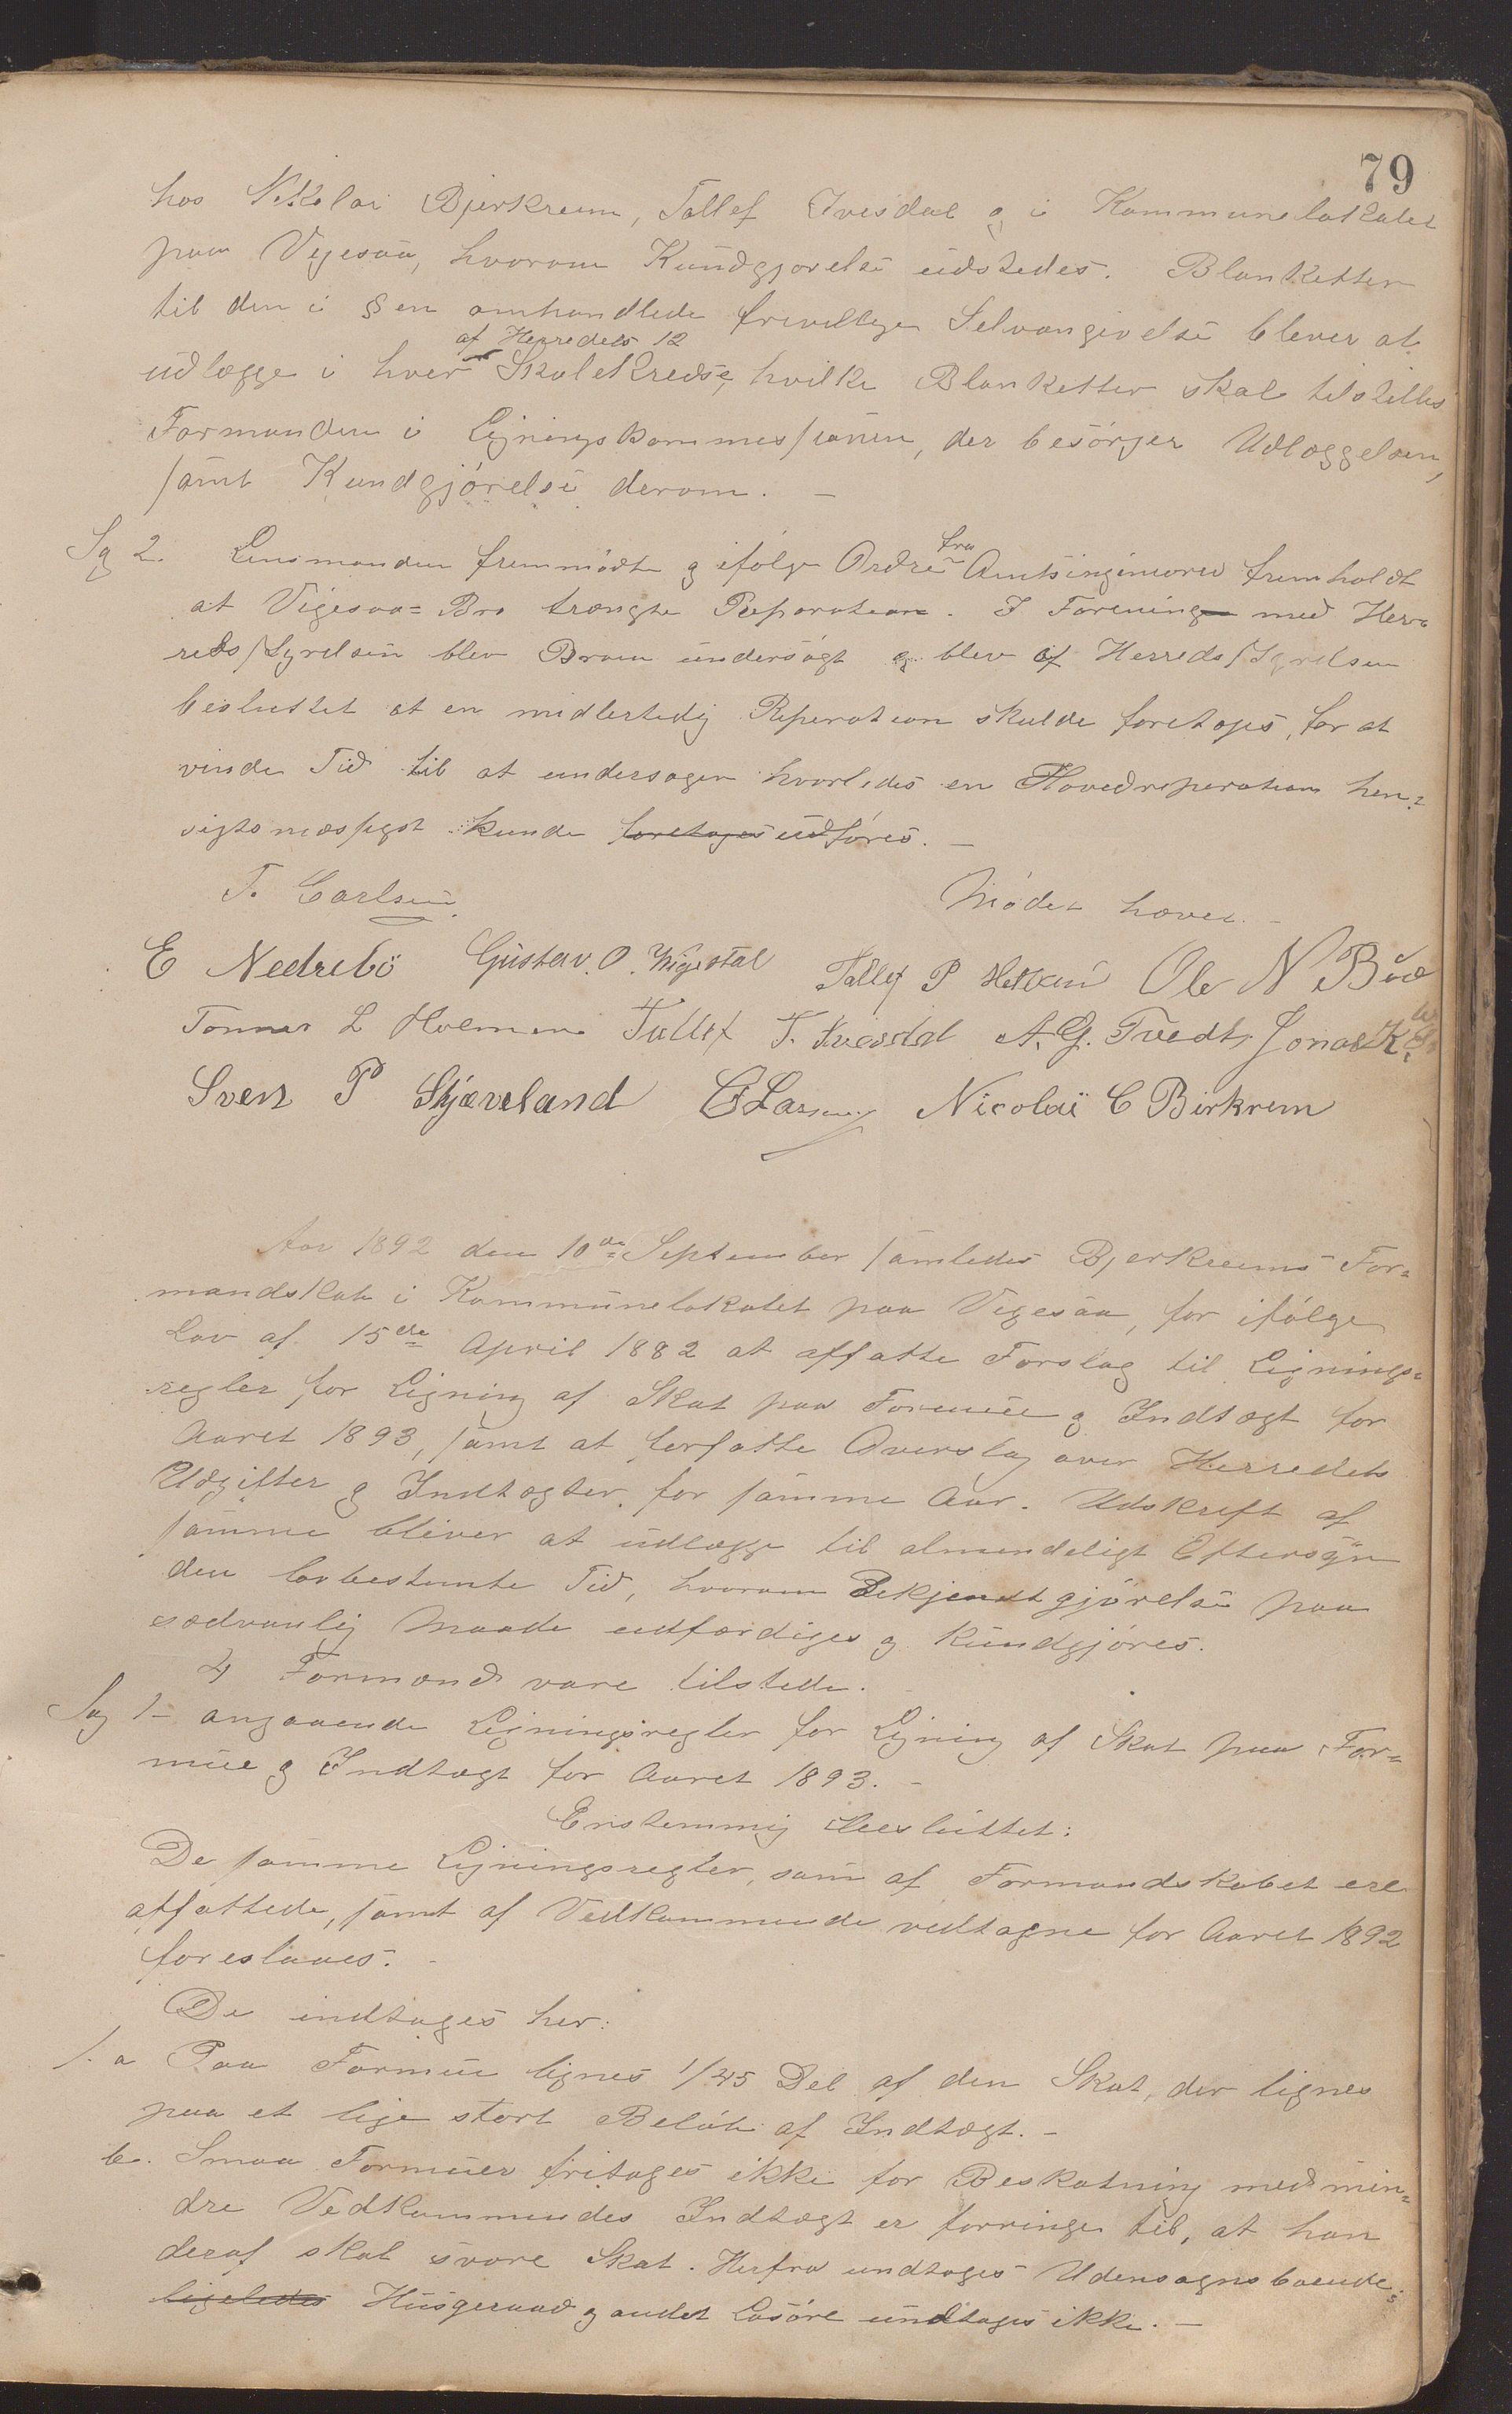 79
hos Nikolai Bjerkreim, Tollef Ivesdal og i Kommunelokalet
paa Vigesaa, hvorom Kundgjørelse udstedes. Blanketter
til den i § en omhandlede frivillige Selvangivelse blever at
af Herredets 12
udlægge i hver Skolekredse, hvilke Blanketter skal tilstilles
Formanden i Ligningskommissionen, der besørger Udlæggelsen,
samt Kundgjørelse derom. —
Sag 2. Lensmanden fremmødte og ifølge Ordre fra Amtsingeniøren fremholdt
at Vigesaa= Bro trængte Reparation. I Forening med Her=
redsstyrelsen blev Broen undersøgt og blev af Herredsstyrelsen
besluttet at en midlertidig Reperation skulde foretages, for at
vinde Tid til at undersøger hvorledes en Hovedreperation hen=
sigtsmæssigst kunde foretages udføres. —
T. Carlsen. Mødet hævet. —
E Nedrebö Gustav. O. Vigestal Tollef P Hetland Ole N Bue
Tønnes L Holmen Tollef T. Ivesdal A. G. Tvedt Jonas K.
Sven P Skjæveland C Larsen Nicolai C Birkrem
Aar 1892 den 10de September samledes Bjerkreims For=
mandskab i Kommunelokalet paa Vigesaa, for ifølge
Lov af 15de April 1882 at affatte Forslag til Lignings=
regler for Ligning af Skat paa Formue og Indtægt for
Aaret 1893, samt at forfatte Overslag over Herredets
Udgifter og Indtægter for samme Aar. Udskrift af
samme bliver at udlægge til almindeligt Eftersyn
den lovbestemte Tid, hvorom Bekjendtgjørelse paa
sædvanlig Maade udfærdiges og kundgjøres.
4 Formænd vare tilstede.
Sag 1 — angaaende Ligningsregler for Ligning af Skat paa For=
mue og Indtægt for Aaret 1893. —
Enstemmig Besluttet:
De samme Ligningsregler, som af Formandskabet ere
affattede, samt af Vedkommende vedtagne for Aaret 1892
foreslaaes. —
De indtages her:
1. a Paa Formue lignes 1/45 Del af den Skat, der lignes
paa et lige stort Beløb af Indtægt. —
b. Smaa Formuer fritages ikke for Beskatning med min=
dre Vedkommendes Indtægt er forringe til, at han
deraf skal svare Skat. Herfra undtages Udensognsboende;
ligeledes Husgeraad og andet Løsøre undtages ikke. —